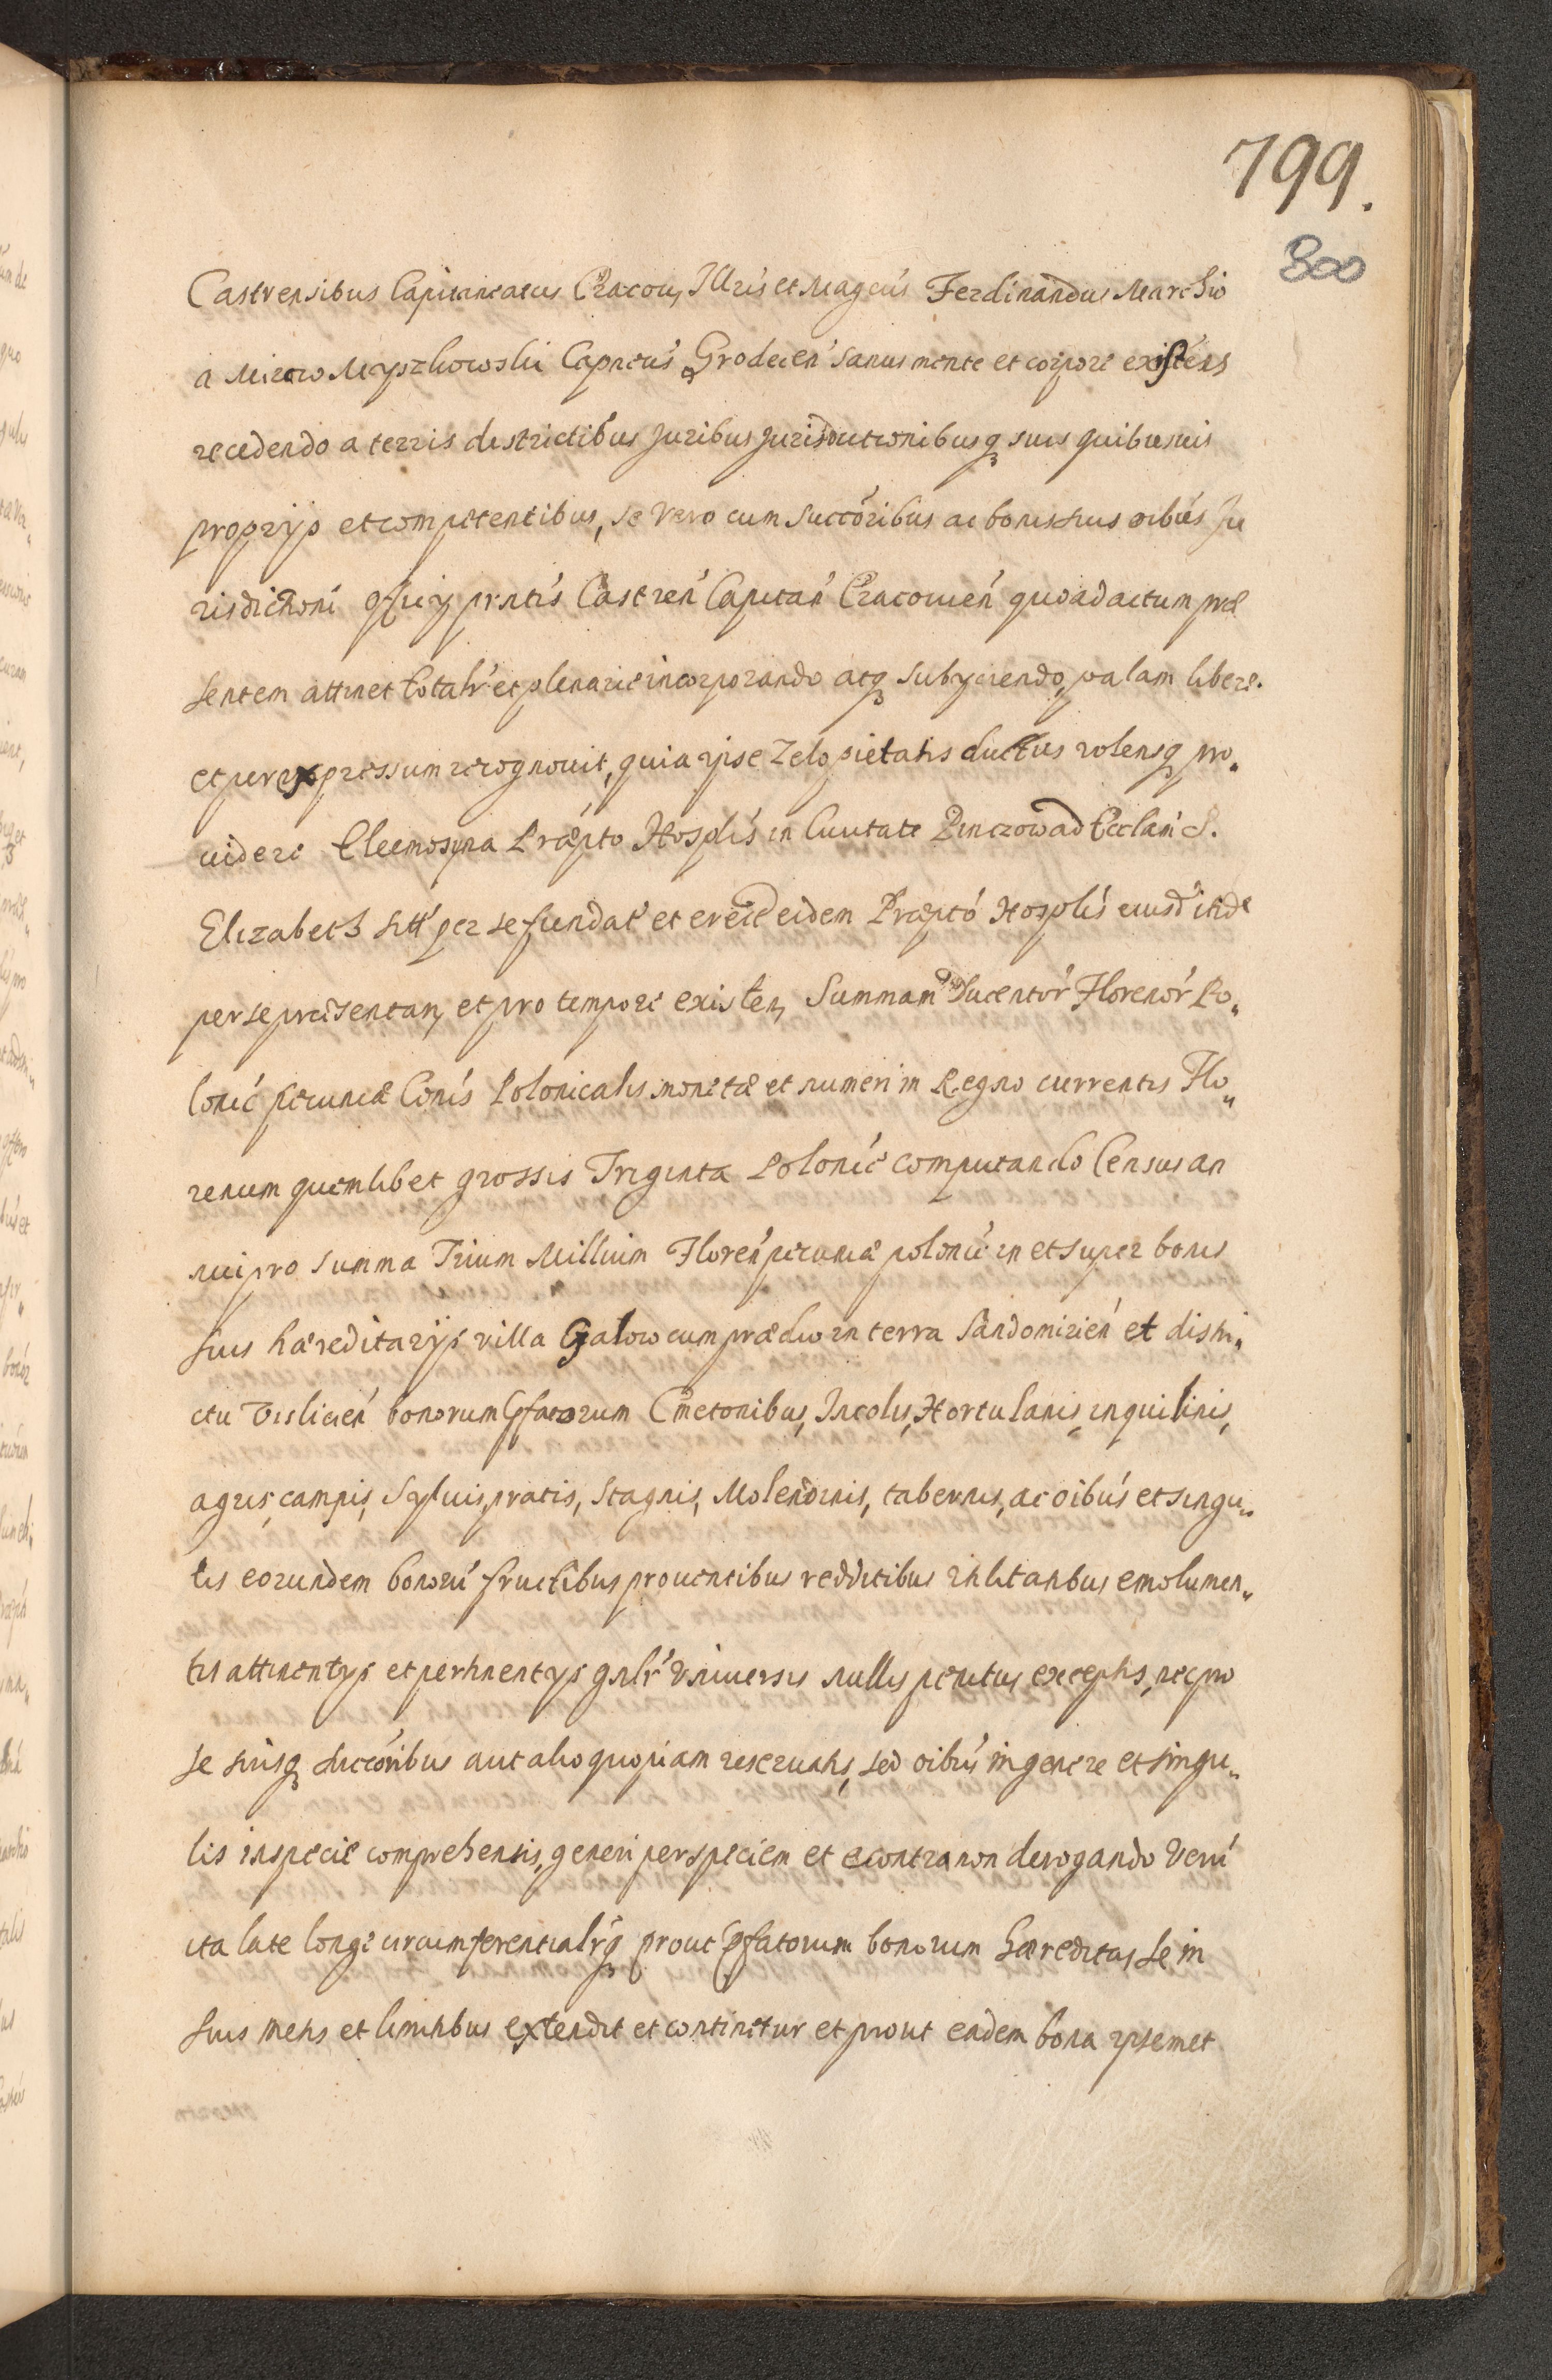 799.
800
Castrensibus Capitaneatus Cracou, Illris et Magcus Ferdinandus Marchio
a Mirow Myszkowski Capneus Grodecen sanus mente et corpore existens
recedendo a terris districtibus Juribus Jurisdictionibusq suis quibusuis
proprijs et competentibus, se vero cum succoribus ac bonis suis oibus Ju
risdictioni Officij prntis Castren Capitan Cracouien quo ad actum præ
sentem attinet totalr et plenarie incorporando atq subyciendo, palam libere.
et per expressum recognouit, quia ipse Zelo pietatis ductus volensq pro„
uidere Eleemosyna Præpto Hosplis in Ciuitate Pinczow ad Ecclam S.
Elizabeth sitt per se fundat et erect eidem Præpto Hosplis eiusd itide
per se præsentan, et pro tempore existen, Summam Ducentor Florenor Po„
lonic pecuniæ Conis Polonicalis monetæ et numeri in Regno currentis Flo„
renum quemlibet grossis Triginta Polonic computando Census an
nui pro summa Trium Millium Floren pecuniæ polonic in et super bonis
suis hæreditarijs villa Galow cum prædio in terra Sandomirien et distri„
ctu Vislicien bonorum pfatorum Cmetonibus, Incolis, Hortulanis, inquilinis,
agris, campis, Syluis, pratis, Stagnis, Molendinis, tabernis, ac oibus et singu„
lis eorundem bonorū fructibus prouentibus redditibus vtilitatibus emolumen„
tis attinentijs et pertinentijs gnlr Vniuersis nullis penitus exceptis, nec pro
se suisq succoribus aut alio quopiam reseruatis, sed oibus in genere et singu„
lis in specie comprehensis, generi per speciem et econtra non derogando Verū
ita late longe circumferentialrq prout pfatorum bonorum hæreditas se in
suis metis et limitibus extendit et continetur et prout eadem bona ipsemet